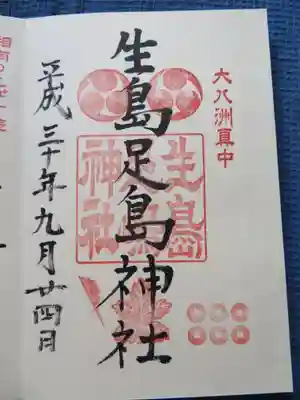 大八洲真中
生島足島神社
生嶌
神社
平成三十年九月廿四日